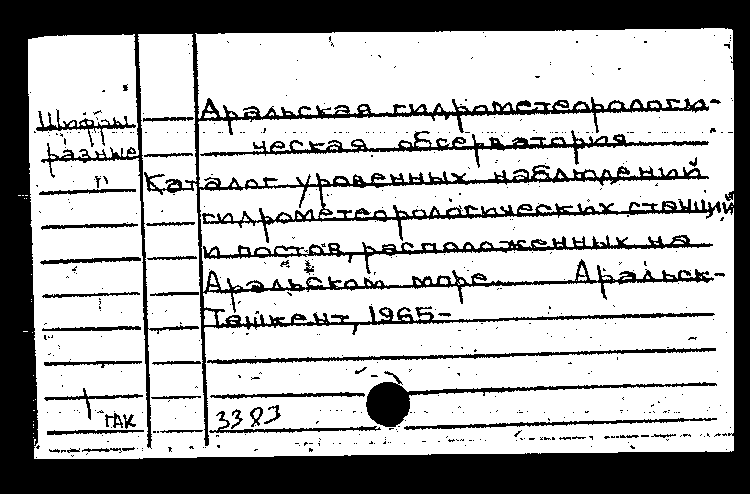 Шифры
разные
Аральская гидрометеорологи-
ческая обсерватория
Каталог уровенных наблюдений
гидрометеорологических станций
и постов, расположенных на
Аральском море Аральск-
Ташкент, 1965-
ГАК
3383